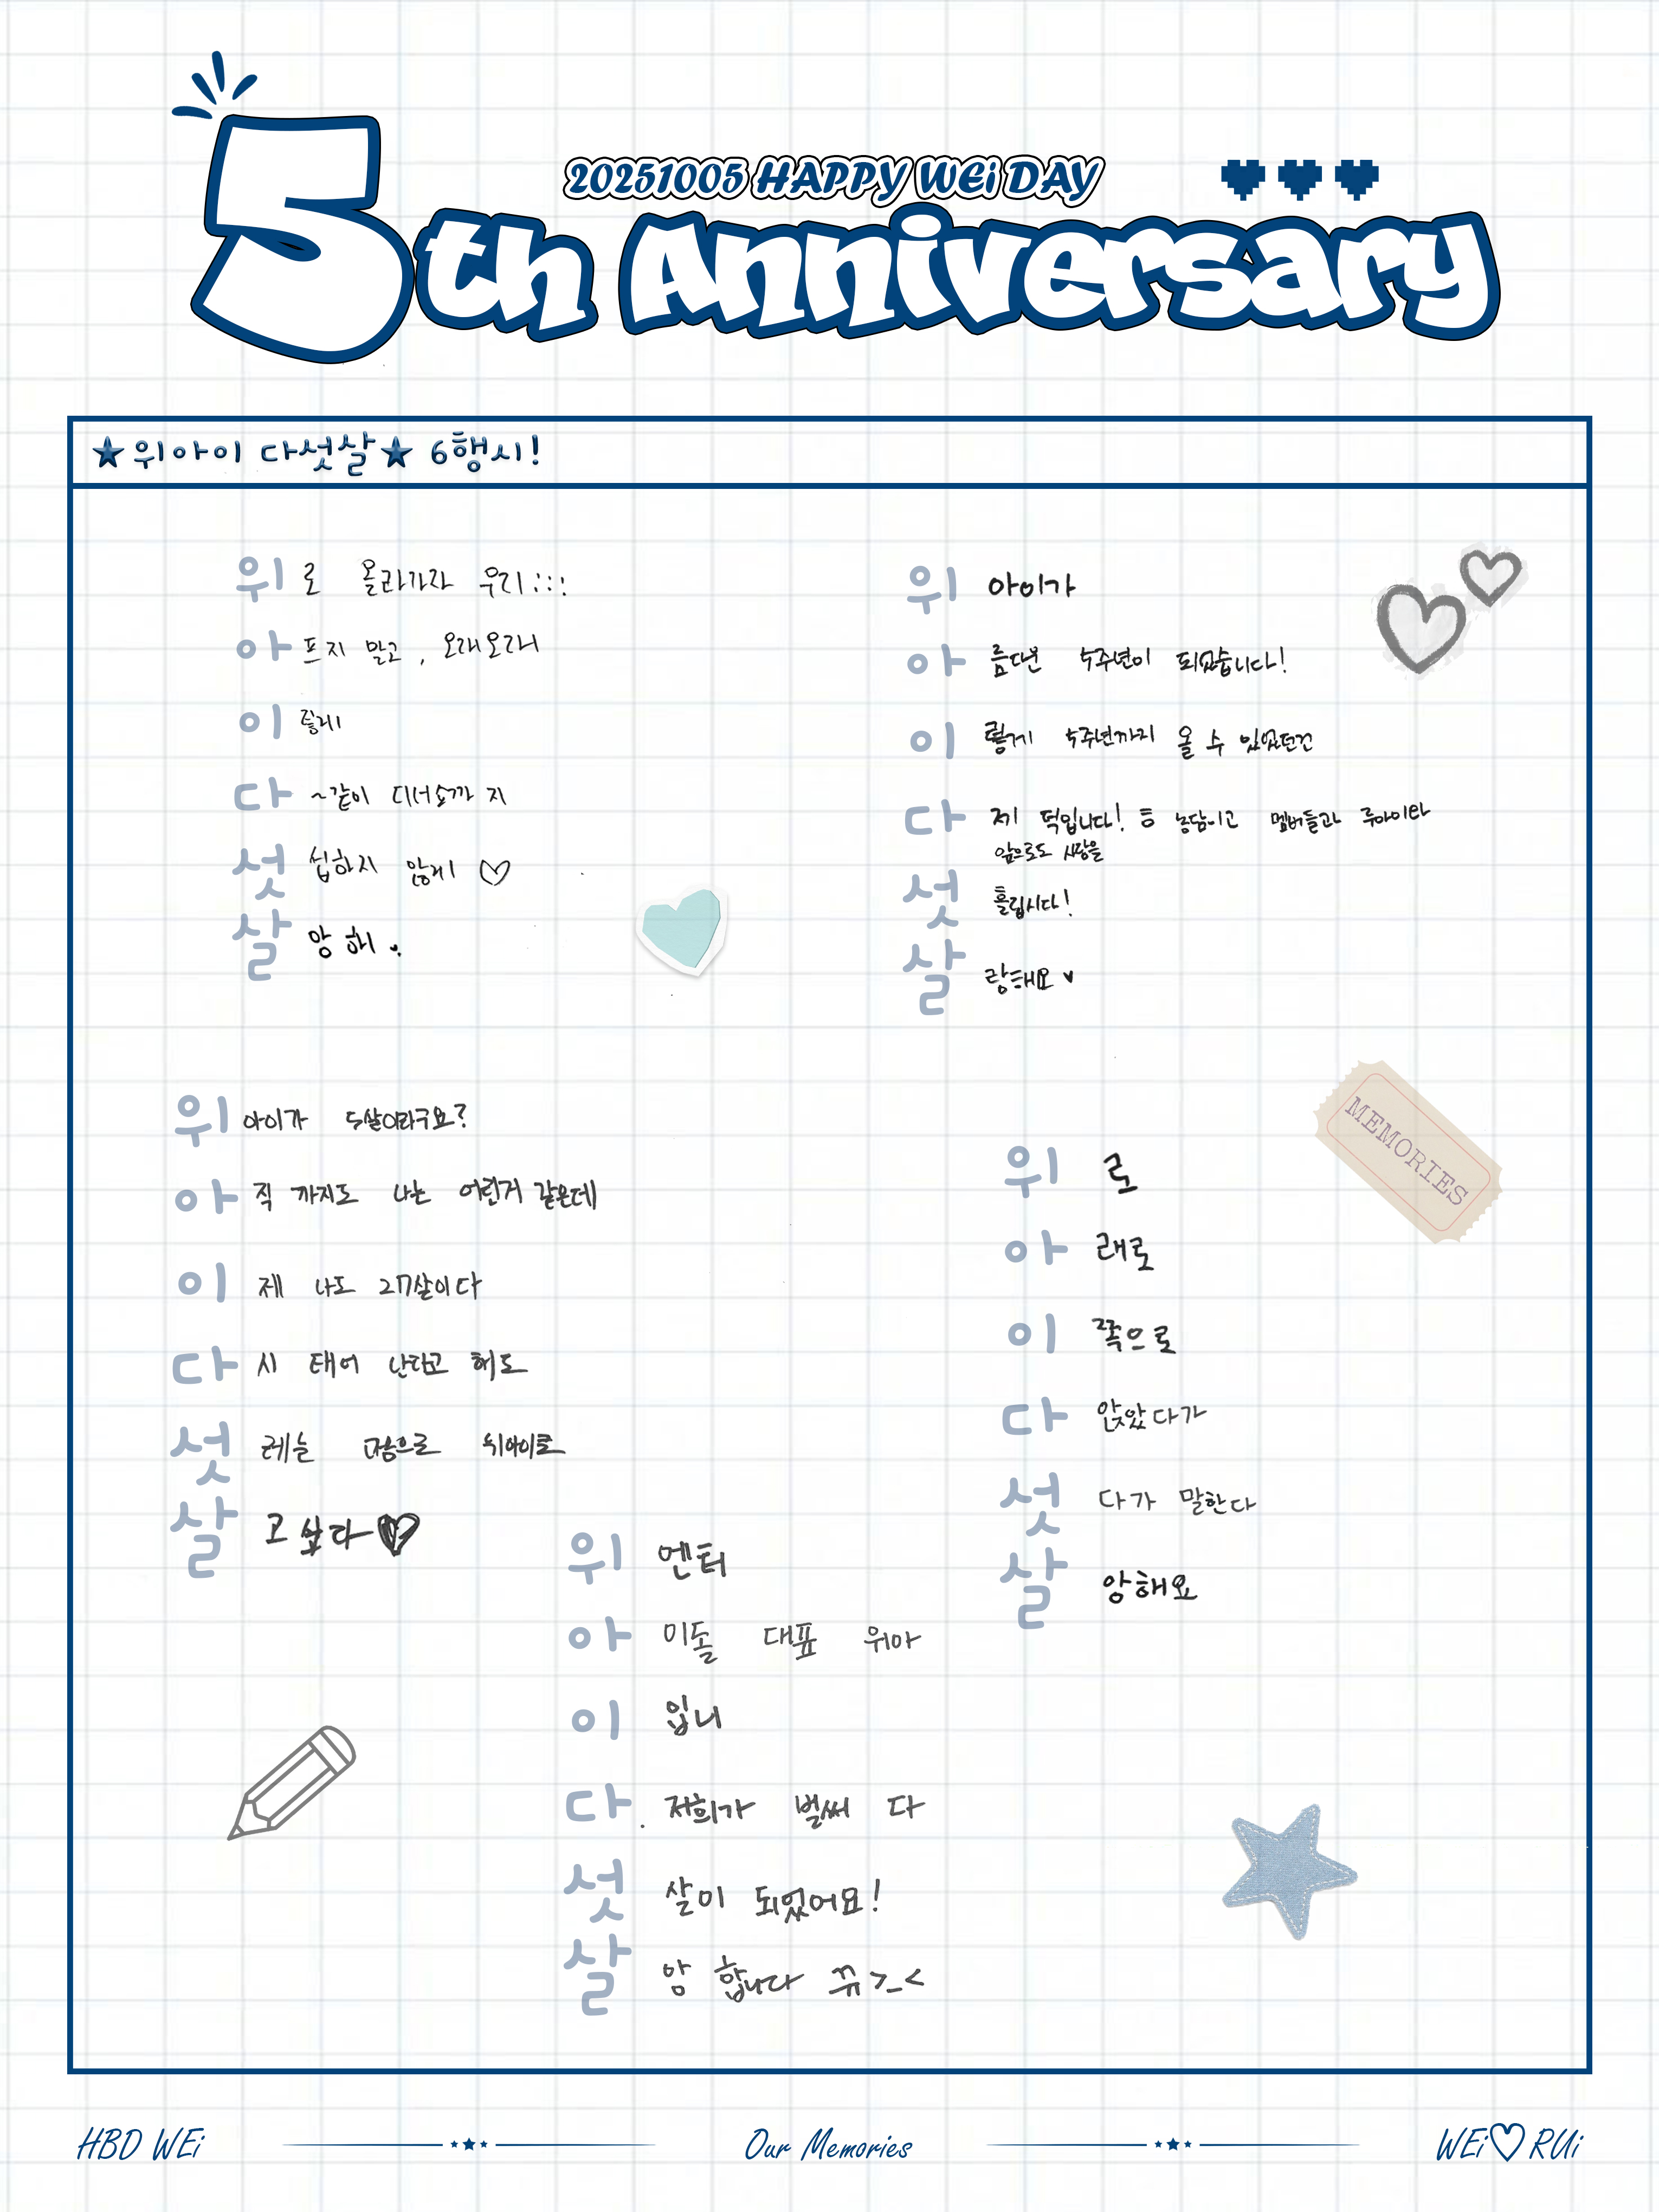 20251005 HAPPY WEi DAY
5th Anniversary
★위아이 다섯살★ 6행시!
위로 올라가자 우리
아프지 말고, 오래오래
이렇게
다~같이
섯섭하지 않게 ♡
살앙해.
위 아이가
아름다운 5주년이 되었습니다!
이렇게 5주년까지 올 수 있었던건
다 제 덕입니다! 농담이고 멤버들과 루아이랑
앞으로도 사랑을
섯
살랑해요 ♥
위아이가 5살이라구요?
아직 까지도 나는 어린거 같은데
이제 나도 27살이다
다시 태어 난다고 해도
섯레는 마음으로 위아이로
살고 싶다♥
위로
아래로
이쪽으로
다 앉았다가
섯다가 말한다
살앙해요
위엔터
아이돌 대표 위아
이입니
다. 저희가 벌써 다
섯살이 되었어요!
살앙 합니다 뀨>_<
MEMORIES
HBD WEi
Our Memories
WEi♡RUi